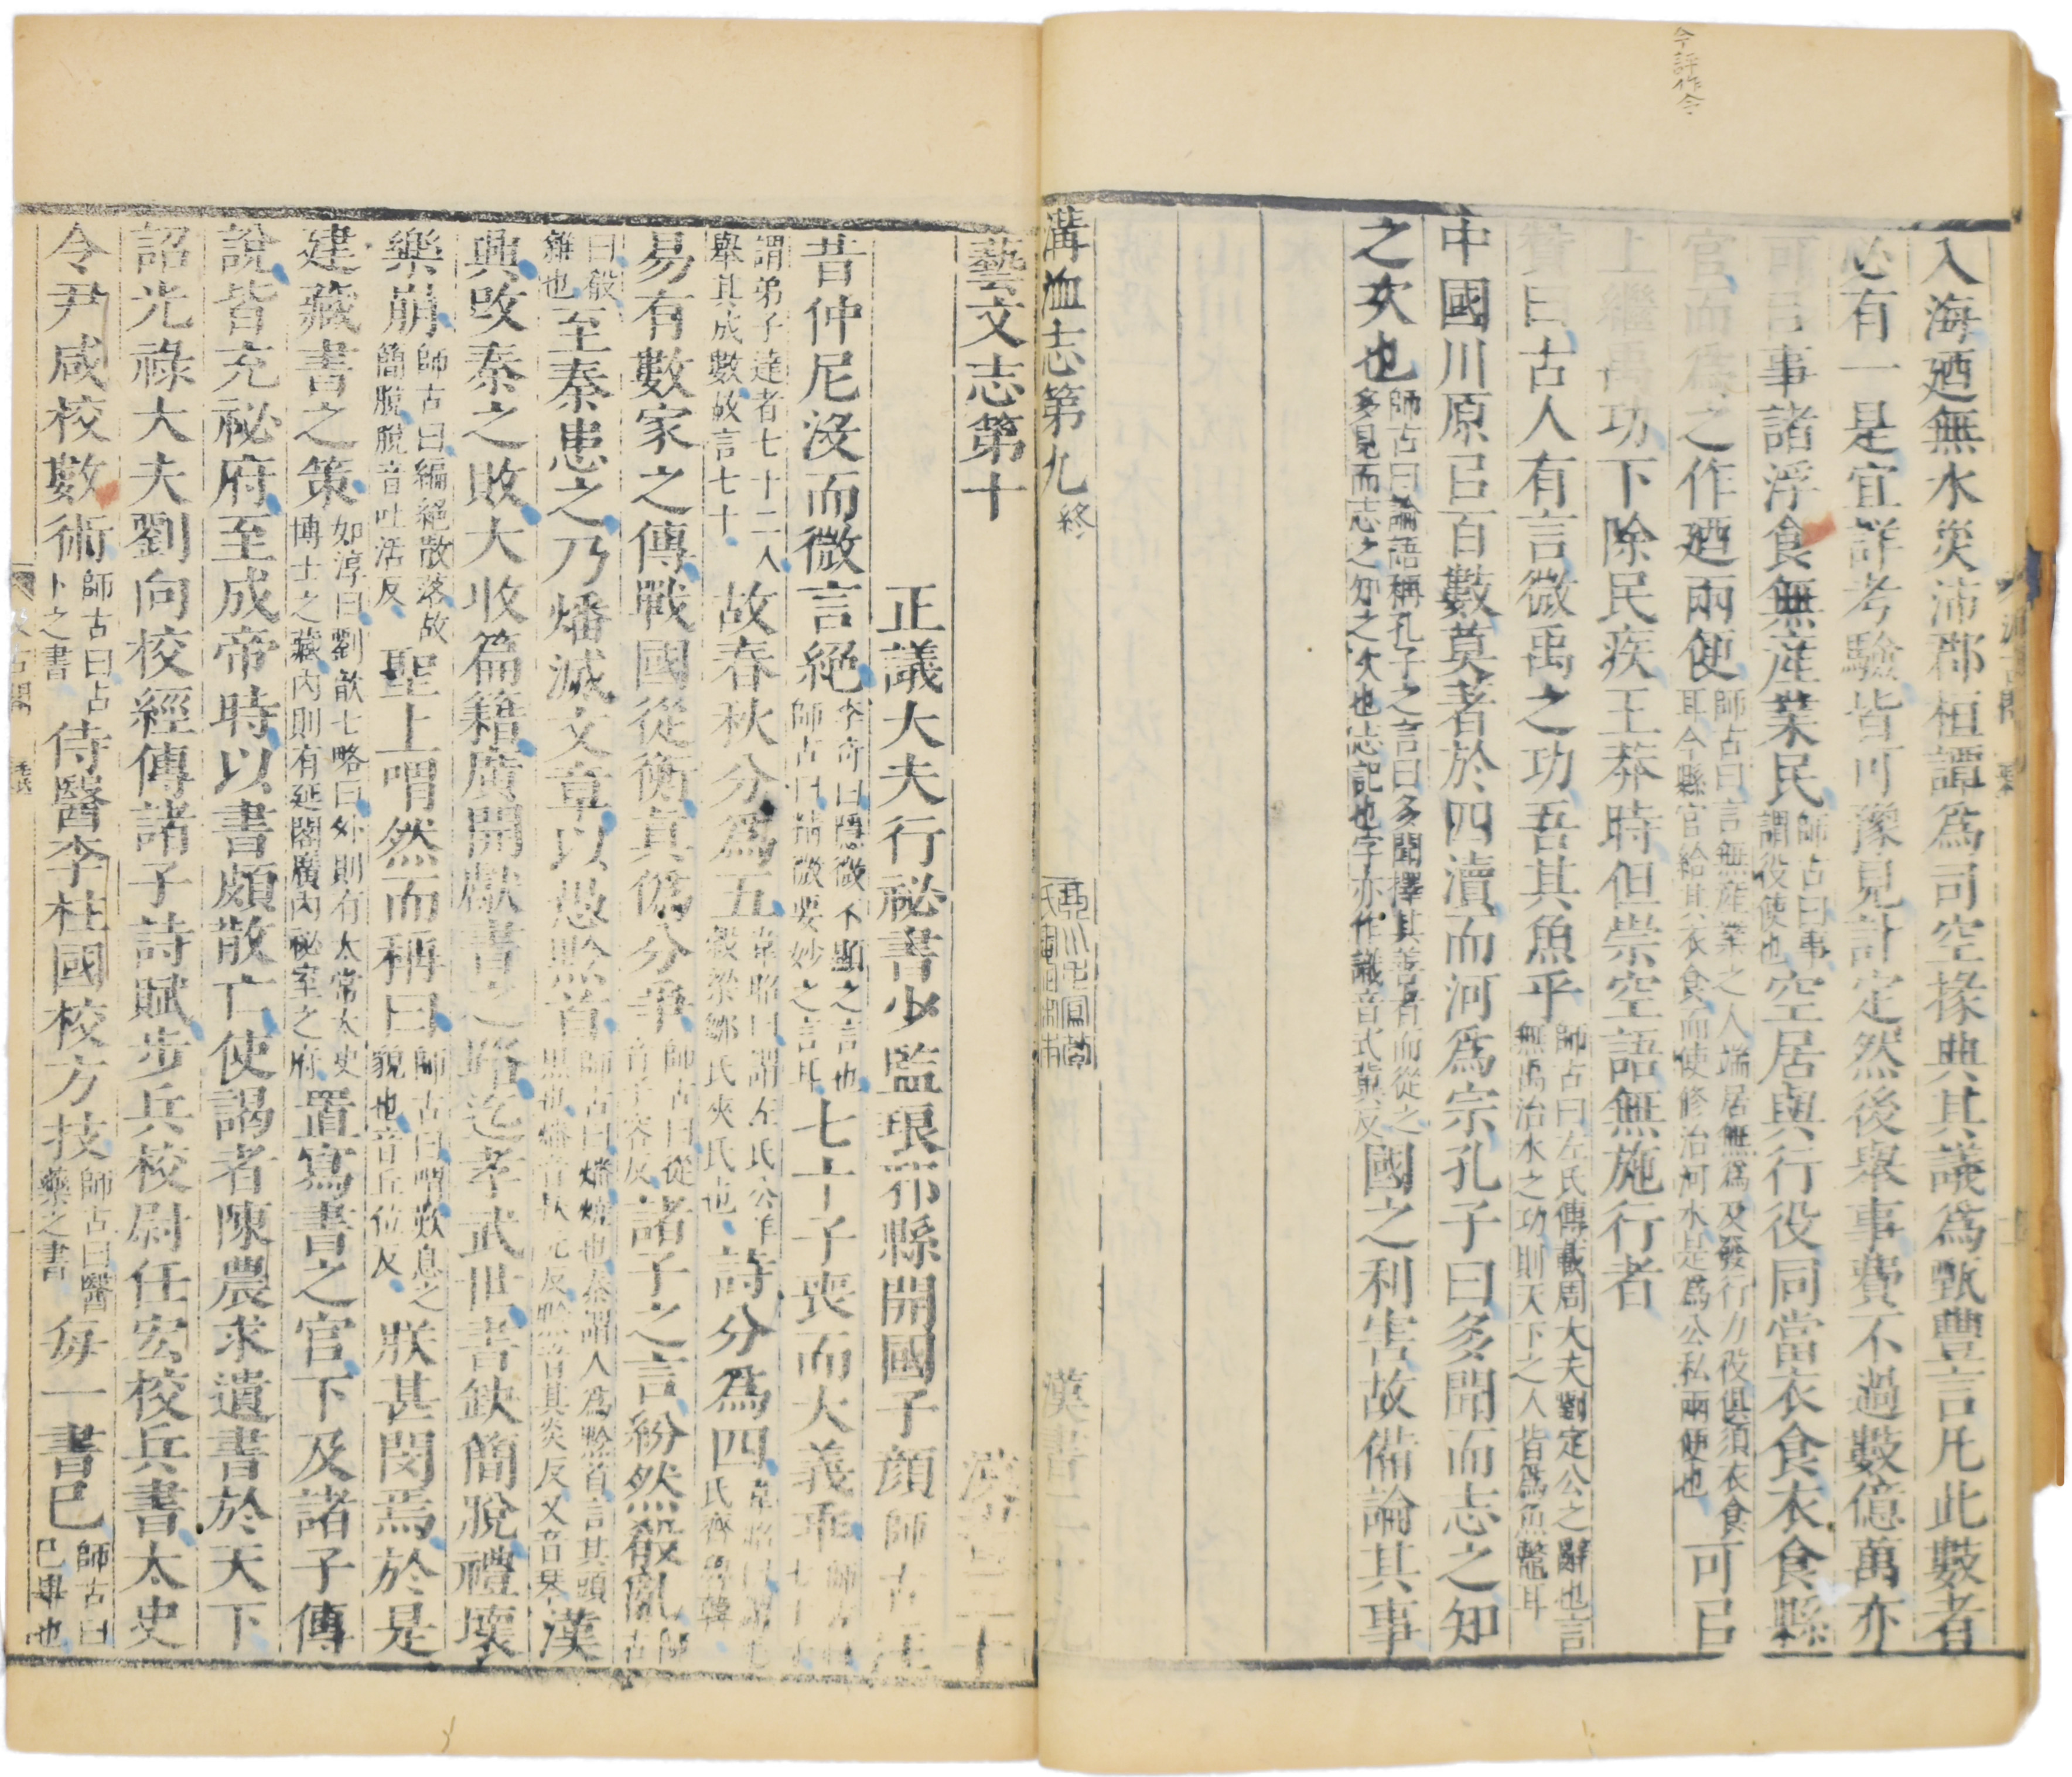 今詳作令
入海廼無水災沛郡桓譚爲司空掾典其議爲甄豐言凡此數者
必有一是宜詳考驗皆可豫見計定然後舉事費不過數億萬亦
可㠯事諸浮食無產業民師古曰事謂役使也空居與行役同當衣食衣食縣
官而爲之作廼兩便師古曰言無產業之人端居無爲及發行力役俱須衣食耳今縣官給其衣食而使修治河水是爲公私兩便也可㠯
上繼禹功下除民疾王莽時但崇空語無施行者
贊曰古人有言微禹之功吾其魚乎師古曰左氏傳載周大夫劉定公之辭也言無禹治水之功則天下之人皆爲魚鼈耳
中國川原㠯百數莫著於四瀆而河爲宗孔子曰多聞而志之知
之次也師古曰論語稱孔子之言曰多聞擇其善者而從之多見而志之知之次也志記也字亦作識音式冀反國之利害故備論其事
溝洫志第九終 漢書二十九
藝文志第十 漢書三十
正議大夫行祕書少監琅邪縣開國子顏師古注
昔仲尼沒而微言絕李奇曰隱微不顯之言也師古曰精微要妙之言耳七十子喪而大義乖師古曰七十子
謂弟子達者七十二人舉其成數故言七十故春秋分爲五韋昭曰謂左氏公羊穀梁鄒氏夾氏也詩分爲四韋昭曰謂毛氏齊魯韓
易有數家之傳戰國從衡真僞分爭師古曰從音子容反諸子之言紛然殽亂師古
曰殽雜也至秦患之乃燔滅文章以愚黔首師古曰燔燒也秦謂人爲黔首言其頭黑也燔音扶元反黔音其炎反又音琴漢
興改秦之敗大收篇籍廣開獻書之路迄孝武世書缺簡脫禮壞
樂崩師古曰編絕散落故簡脫脫音吐活反聖上喟然而稱曰師古曰喟歎息之貌也音丘位反朕甚閔焉於是
建藏書之策如淳曰劉歆七略曰外則有太常太史博士之藏內則有延閣廣內祕室之府置寫書之官下及諸子傳
說皆充祕府至成帝時以書頗散亡使謁者陳農求遺書於天下
詔光祿大夫劉向校經傳諸子詩賦步兵校尉任宏校兵書太史
令尹咸校數術師古曰占卜之書侍醫李柱國校方技師古曰醫藥之書每一書已師古曰已畢也